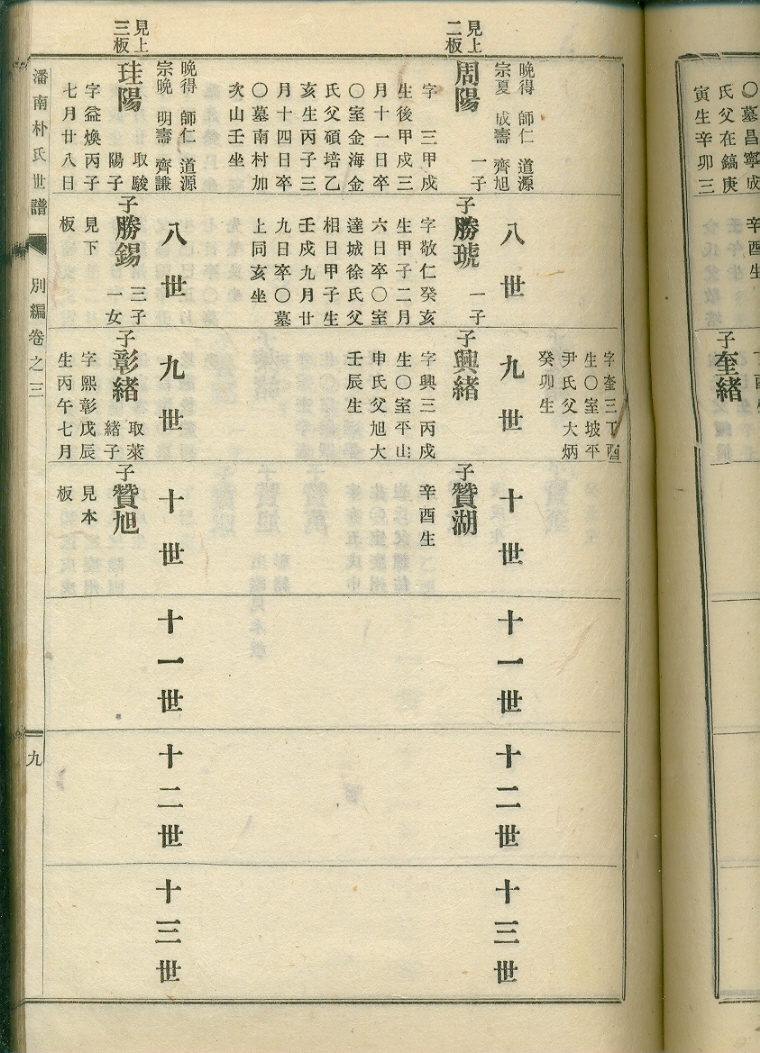 〇墓昌寧成
氏父在鎬庚
寅生辛卯三
辛酉生
子奎緒
見上二板
晩得 師仁 道源
宗夏 成壽 齊旭
周陽 一子
字 三甲戍
生後甲戍三
月十一日卒
〇室金海金
氏父碩培乙
亥生丙子三
月十四日卒
〇墓南村加
次山壬坐
見上三板
晩得 師仁 道源
宗晩 明壽 齊謙
珪陽 取駿
陽子
字益煥丙子
七月廿八日
八世
子勝琥 一子
字敬仁癸亥
生甲子二月
六日卒〇室
達城徐氏父
相日甲子生
壬戍九月廿
九日卒〇墓
上同亥坐
八世
子勝錫 三子
一女
見下
板
字奎三丁酉
生〇室坡平
尹氏父大炳
癸卯生
九世
子興緒
字興三丙戍
生〇室平山
申氏父旭大
壬辰生
九世
子彰緒 取萊
緒子
字熙彰戊辰
生丙午七月
十世
子贊湖
辛酉生
十世
子贊旭
見本
板
十一世
十一世
十二世
十二世
十三世
十三世
潘南朴氏世譜 別編卷之三 九